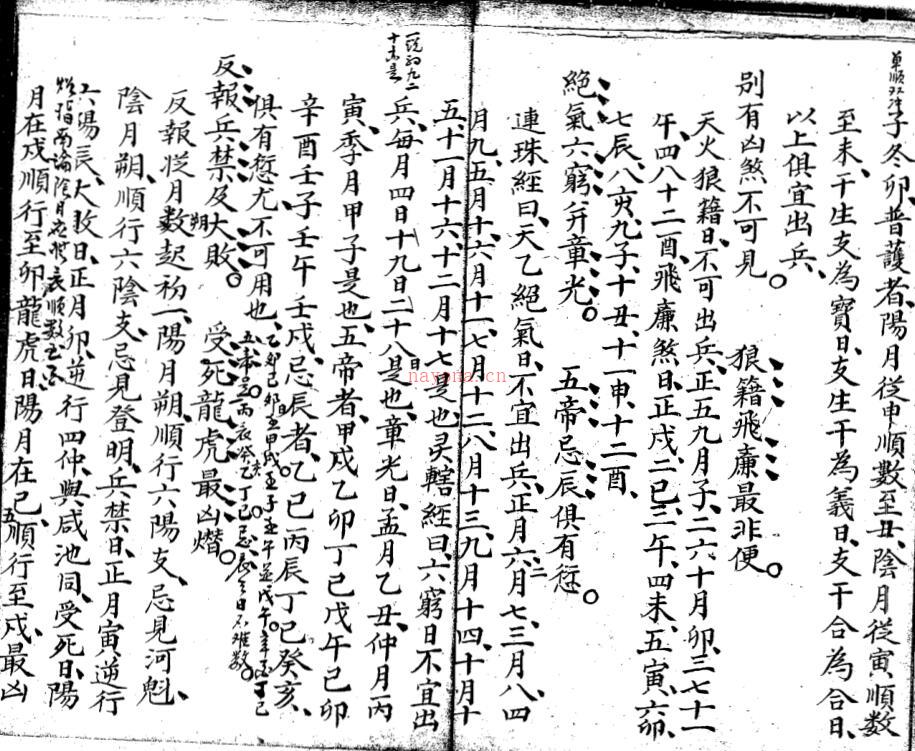 子冬卯、普護者、陽月從申順數至丑、陰月從寅順數
至未、干生支為寶日、支生干為義日、支干合為合日、
以上俱宜出兵、
別有凶煞不可見。 狼籍飛廉最非便。
天火狼籍日、不可出兵、正五九月子、二六十月卯、三七十一
午、四八十二酉、飛廉煞日、正戌、二巳、三午、四未、五寅、六卯、
七辰、八亥、九子、十丑、十一申、十二酉、
絕氣六窮并章光。 五帝忌辰俱有愆。
連珠經曰、天乙絕氣日、不宜出兵、正月六、二月七、三月八、四
月九、五月十、六月十一、七月十二、八月十三、九月十四、十月十
五、十一月十六、十二月十七是也、灵轄經曰、六窮日不宜出
兵、每月四日十九日二十八日是也、章光日、孟月乙丑、仲月丙
寅、季月甲子是也、五帝者、甲戌乙卯丁巳戊午己卯
辛酉壬子壬午壬戌、忌辰者、乙巳丙辰丁巳癸亥、
俱有愆尤不可用也、
反報兵禁及大敗。 受死龍虎最凶熸。
反報從月數起初一、陽月朔、順行六陽支、忌見河魁、
陰月朔、順行六陰支、忌見登明、兵禁日、正月寅、逆行
六陽辰、大敗日、正月卯、逆行四仲、與咸池同、受死日、陽
月在戌、順行至卯、龍虎日、陽月在巳、順行至戌、最凶
nayona.cn